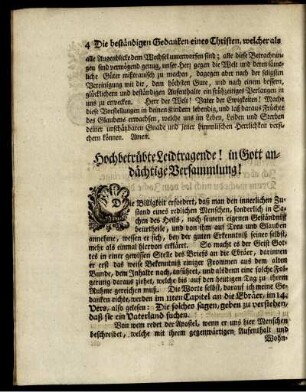 4 Die beständigen Gedancken eines Christen, welcher als
alle Augenblicke dem Wechsel unterworffen sind; alle diese Betrachtun-
gen sind vermögend genug, unser Hertz gegen die Welt und deren sämt-
liche Güter mißtrauisch zu machen, dagegen aber nach der seligsten
Vereinigung mit dir, dem höchsten Gute, und nach einem bessern,
glücklichern und beständigen Auffenthalte ein frühzeitiges Verlangen in
uns zu erwecken. Herr der Welt! Vater der Ewigkeiten! Mache
diese Vorstellungen in deinen Kindern lebendig, und laß daraus Früchte
des Glaubens erwachsen, welche uns im Leben, Leiden und Sterben
deiner unschätzbaren Gnade und jener himmlischen Herrlichkeit versi-
chern können. Amen.
Hochbetrübte Leidtragende! in Gott an-
dächtige Versammlung!
Die Billigkeit erfordert, daß man den innerlichen Zu-
stand eines redlichen Menschen, sonderlich in Sa-
chen des Heils, nach seinem eigenen Geständniß
beurtheile; und von ihm aus Treu und Glauben
annehme, wessen er sich, bey der guten Erkenntniß seiner selbst,
mehr als einmal hierdurch erkläret. So macht es der Geist Got-
tes in einer gewissen Stelle des Briefs an die Ebräer, darinnen
er erst das weise Bekenntniß einiger Frommen aus dem alten
Bunde, dem Inhalt nach, anführet, und alsdenn eine solche Fol-
gerung daraus ziehet, welche bis auf den heutigen Tag zu ihrem
Ruhme gereichen muß. Die Worte selbst, darauf ich meine Ge-
dancken richte, werden im 11ten Capitel an die Ebräer, im 14.
Vers, also gelesen: Die solches sagen, geben zu verstehen,
daß sie ein Vaterland suchen.
Von wem redet der Apostel, wenn er uns hier Menschen
beschreibet, welche mit ihrem gegenwärtigen Aufenthalt und
Wohn-